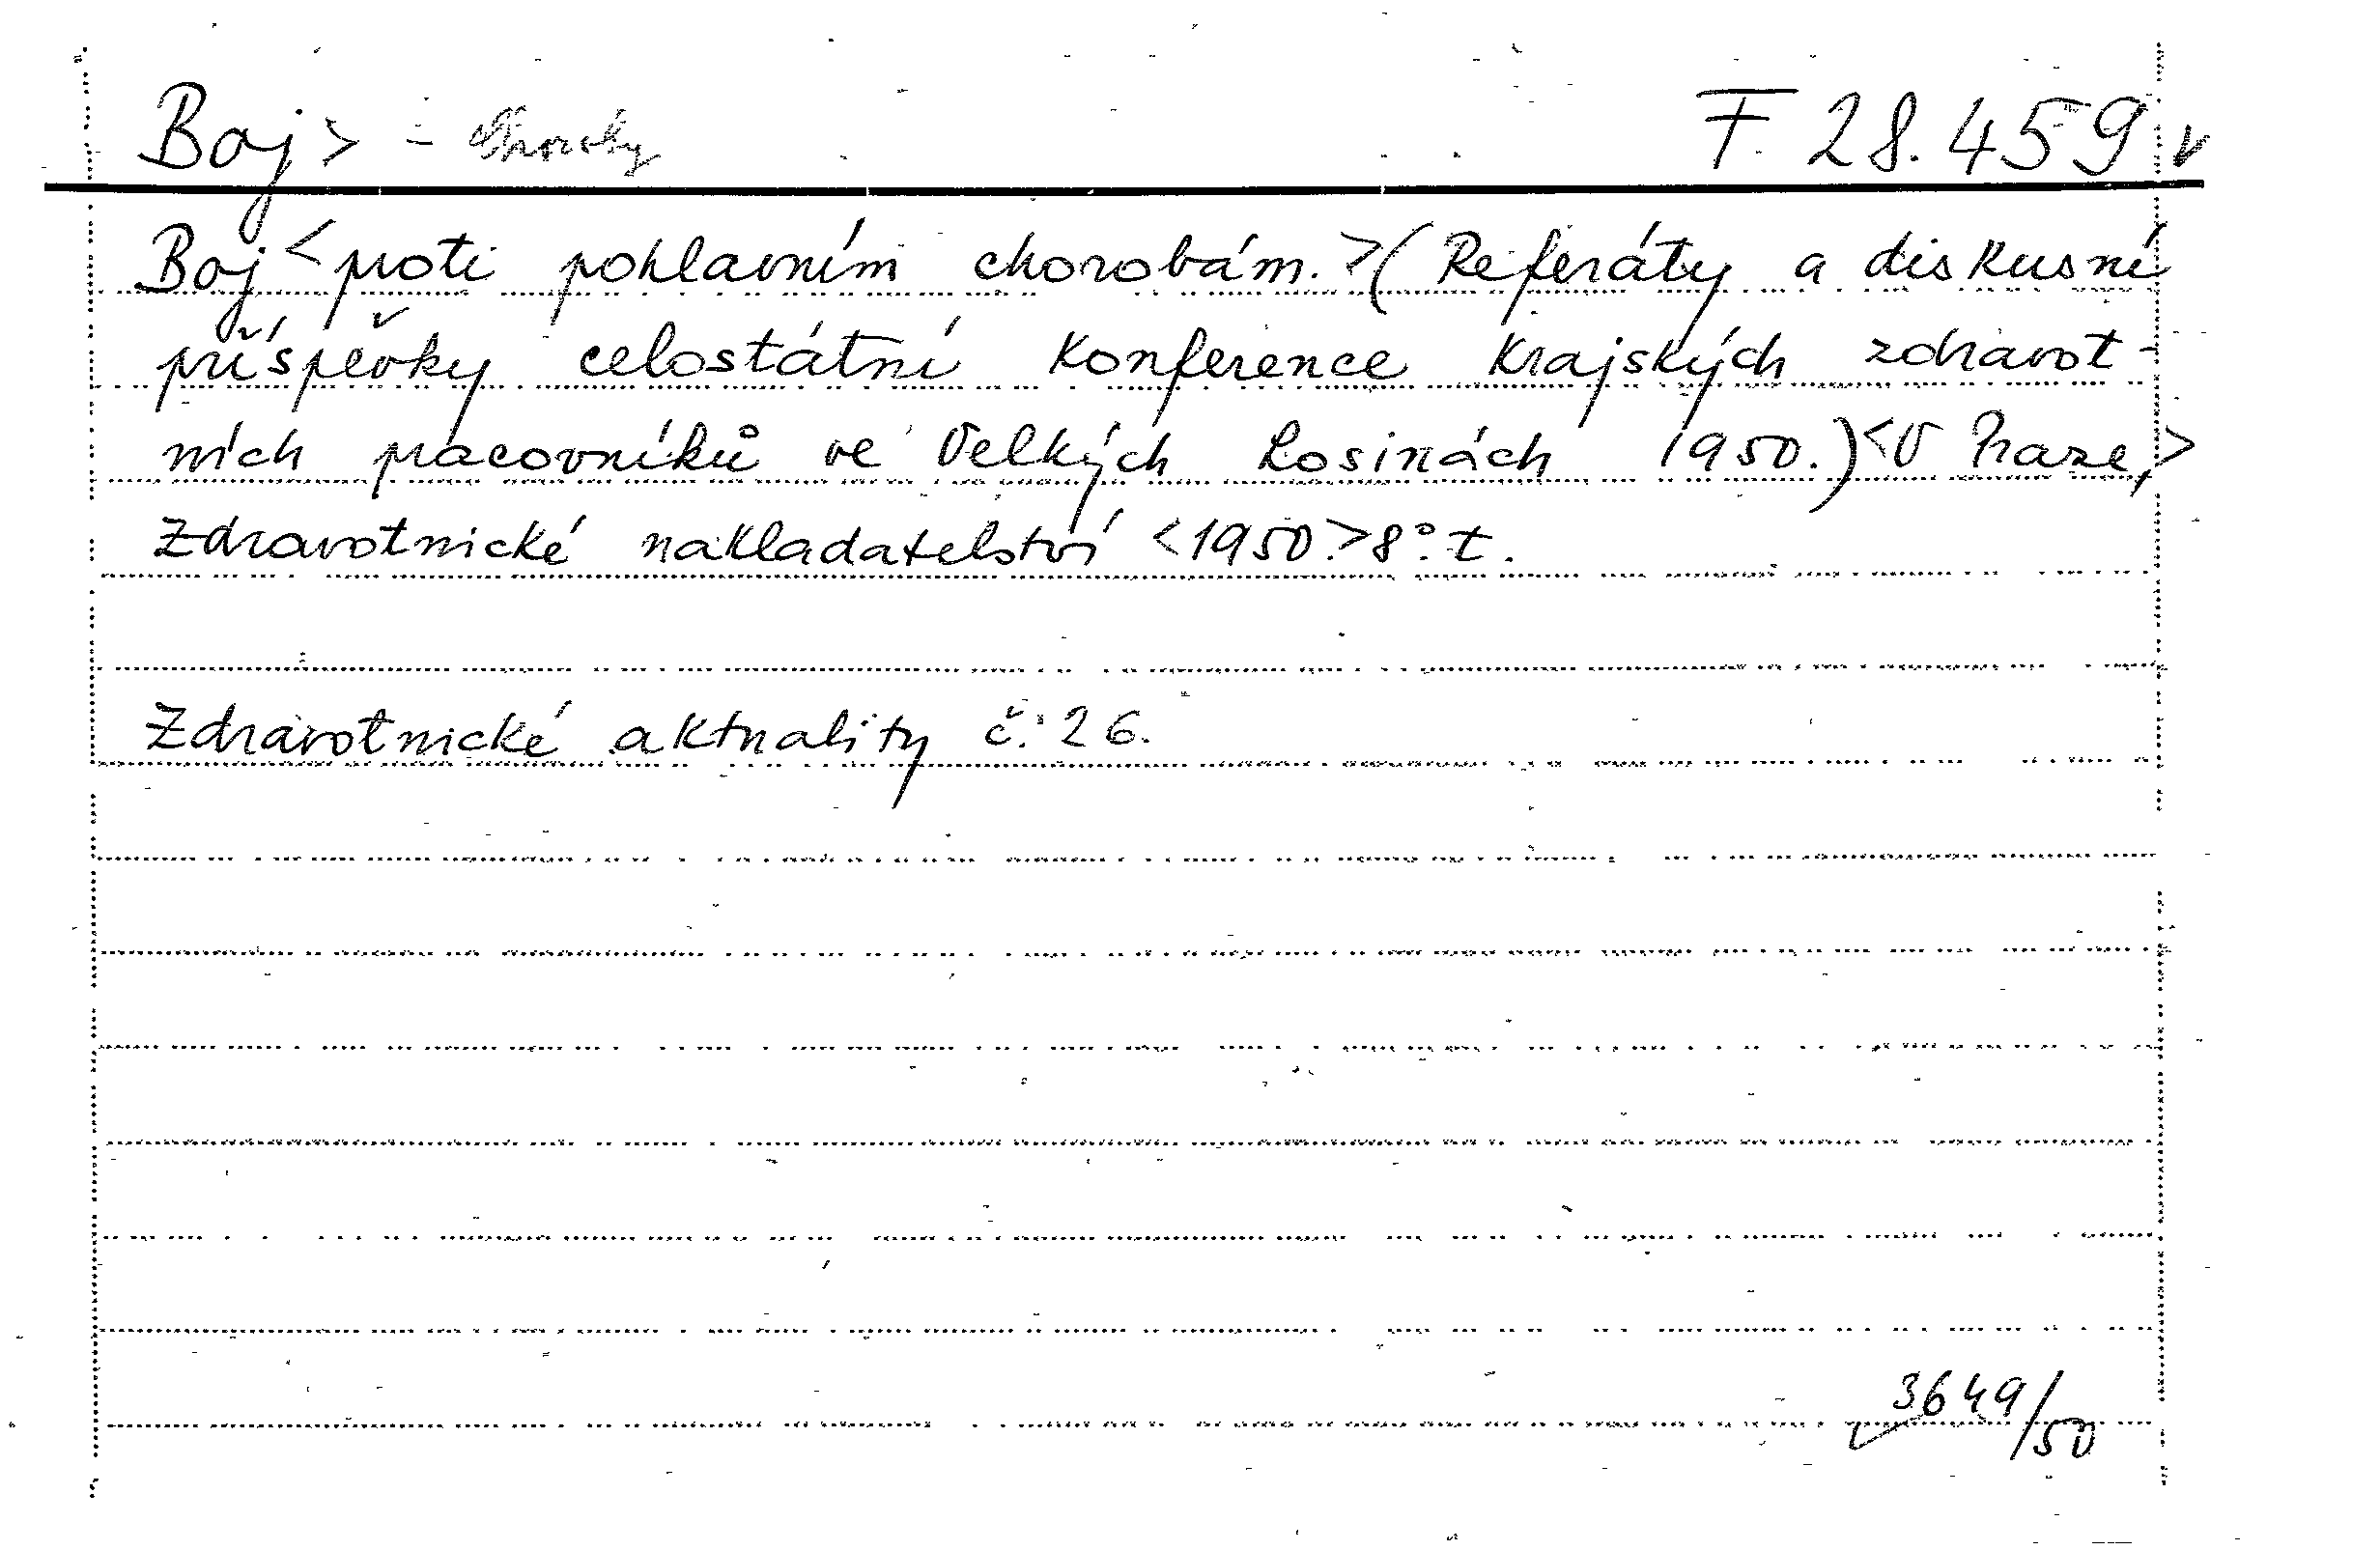 Boj > - Choroby F 28.459 v
Boj < proti pohlavním chorobám. > (Referáty a diskusní
příspěvky celostátní konference krajských zdravot-
ních pracovníků ve Velkých Losinách 1950.) <V Praze,>
Zdravotnické nakladatelství <1950.> 8°. t.
Zdravotnické aktuality č. 26.
3649/50